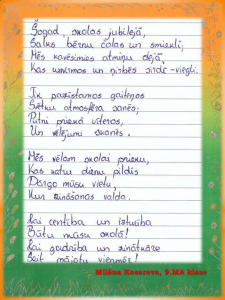 Šogad, skolas jubilejā,
Salks bērnu čalas un smiekli,
Mēs kavēsimies atmiņu dejā,
Kas un sildīs viegli.
Ik pazīstamos gaiteņos
Svētku atmosfēra sanēs,
Putni priekā vīteros,
Un vēlējumi skanēs.
Mēs vēlam skolai prieku,
Kas katru dienu pildīs
Dārgo mūsu vietu,
Kur zināšanas valda.
Lai centība un izturība
Būtu mūsu skolā!
Lai gudrība un zinātkāre
Šeit mājotu vienmēr!
Milāna Kosareva, 9.MA klase